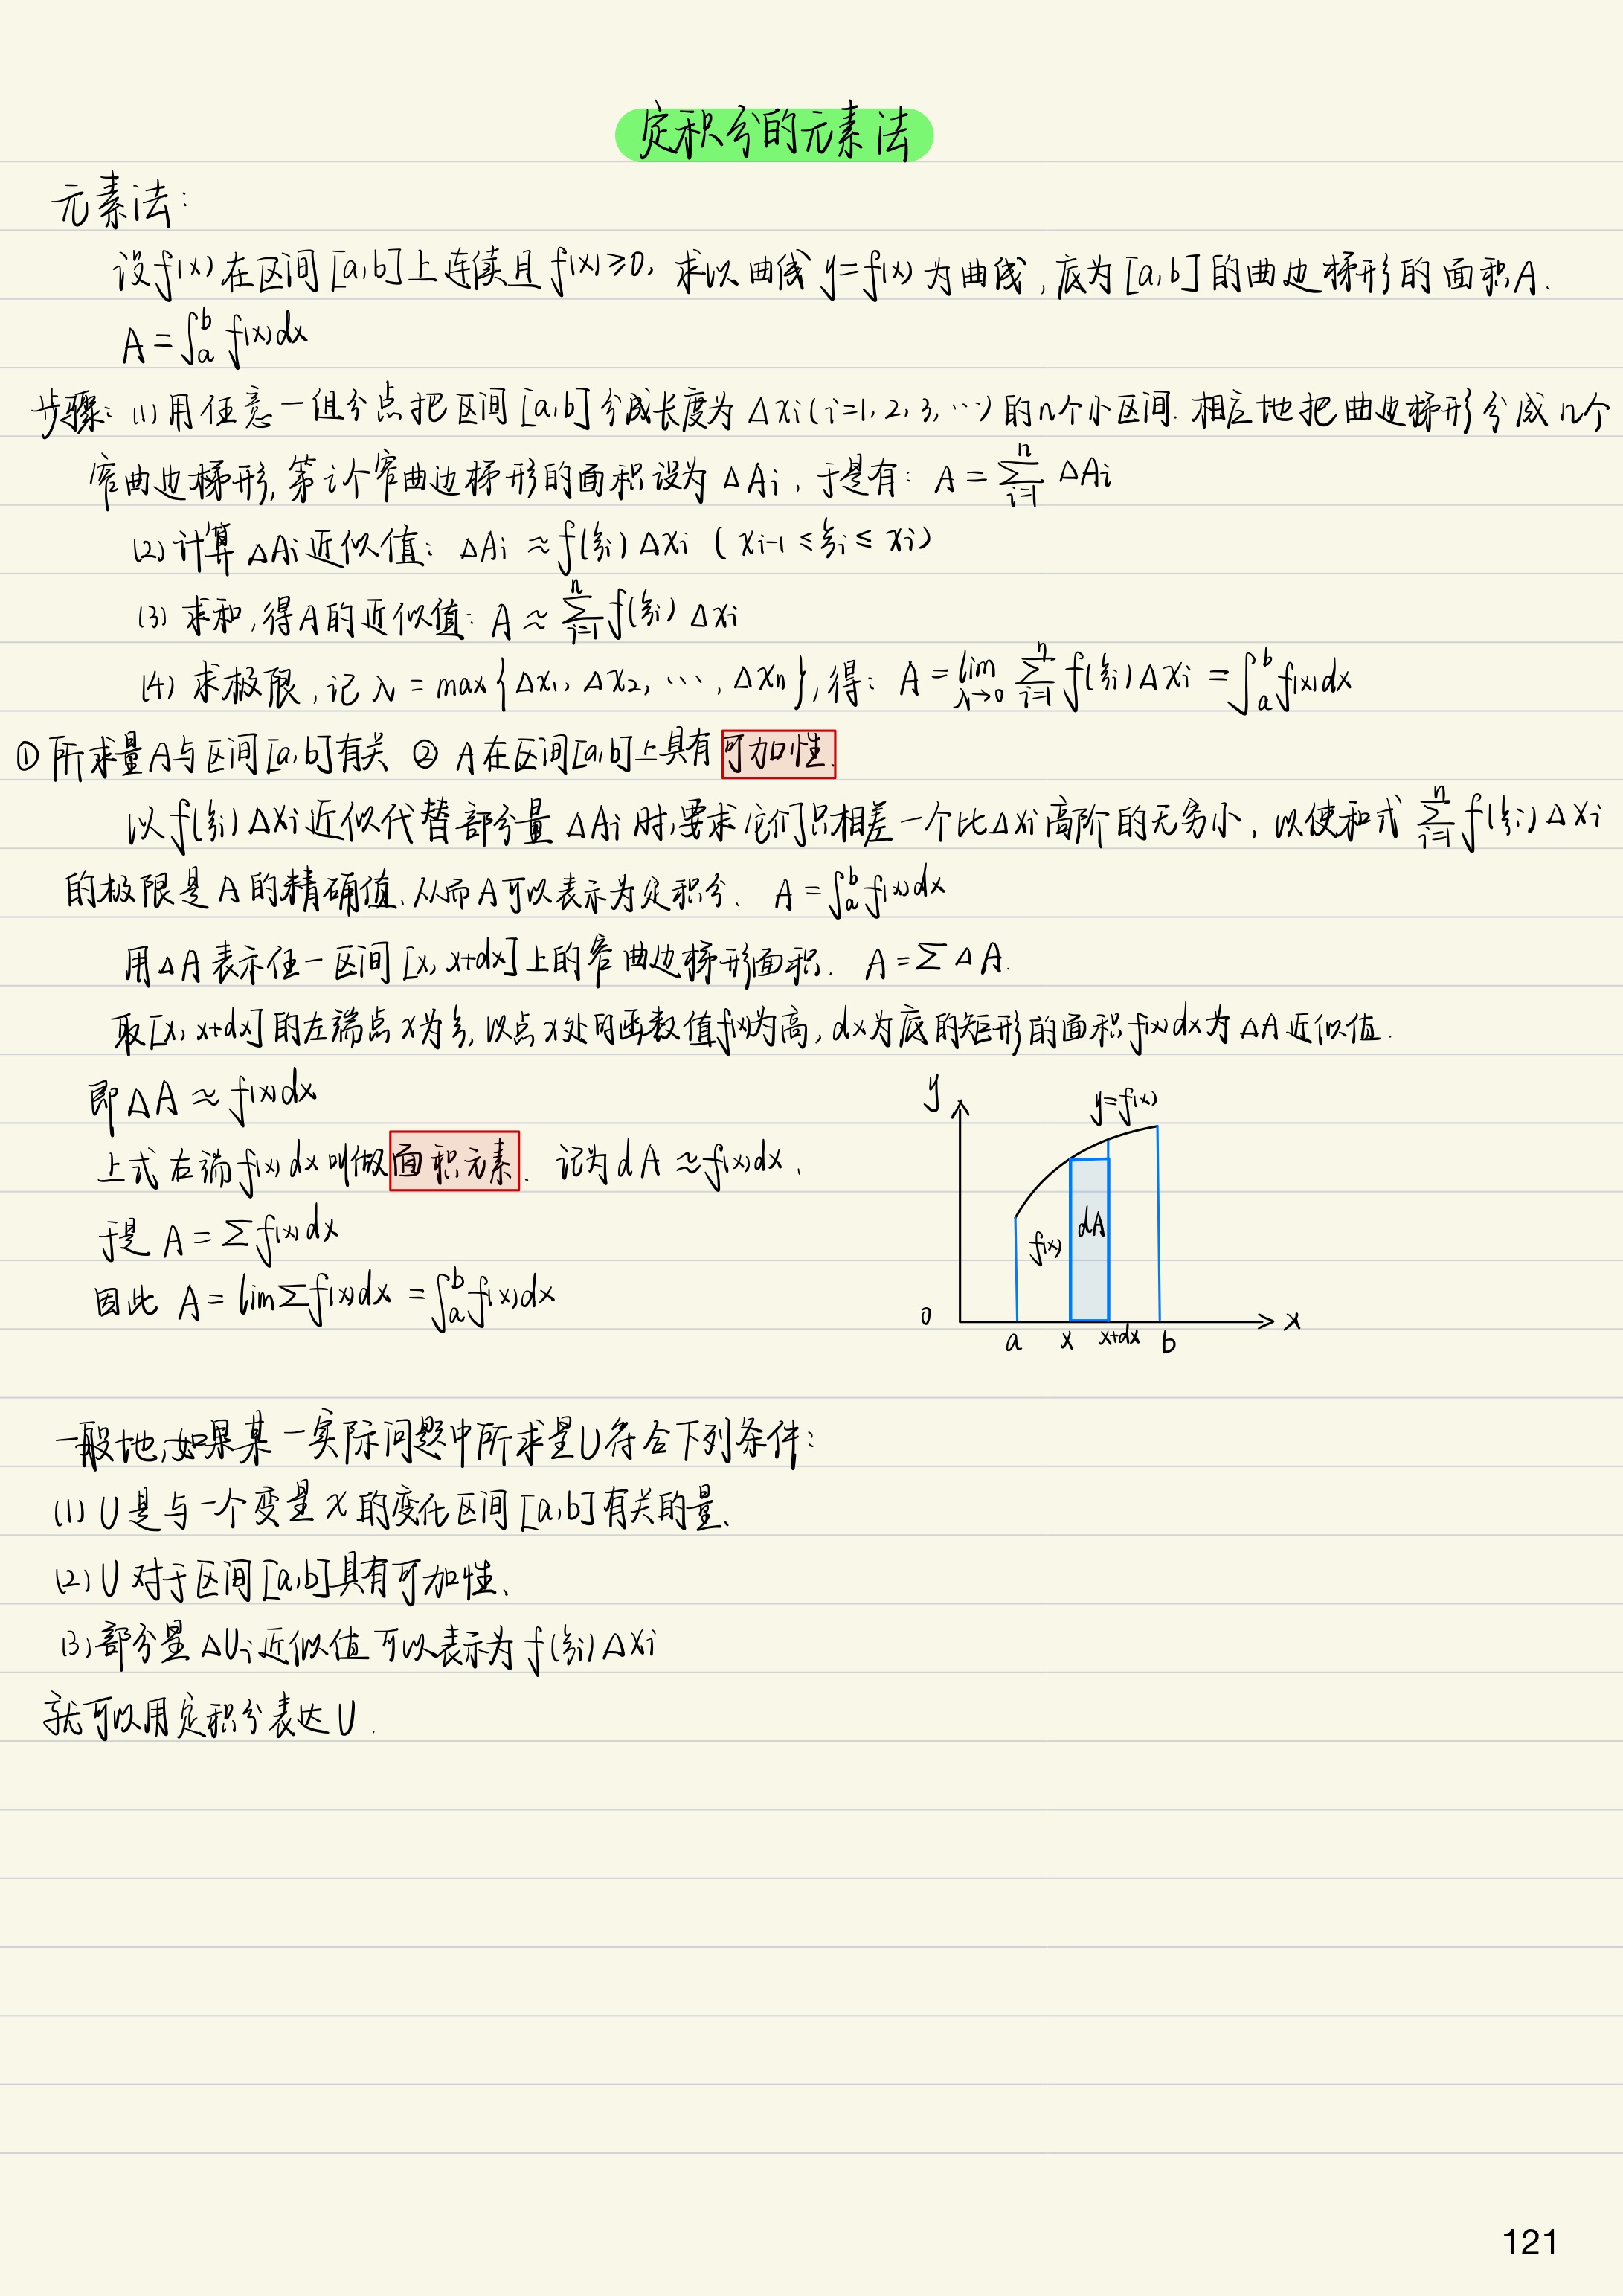 定积分的元素法
元素法:
设f(x)在区间[a,b]上连续且f(x)≥0, 求以曲线y=f(x)为曲线,底为[a,b]的曲边梯形的面积A.
A=∫_a^b f(x)dx
步骤:(1)用任意一组分点把区间[a,b]分成长度为Δxi(i=1,2,3,…)的n个小区间.相应地把曲边梯形分成n个
窄曲边梯形,第i个窄曲边梯形的面积设为ΔAi,于是有: A=∑_{i=1}^n ΔAi
(2)计算ΔAi近似值: ΔAi≈f(ξi)Δxi (xi-1≤ξi≤xi)
(3)求和,得A的近似值: A≈∑_{i=1}^n f(ξi)Δxi
(4)求极限,记λ=max{Δx1,Δx2,…,Δxn},得: A=lim_{λ→0} ∑_{i=1}^n f(ξi)Δxi=∫_a^b f(x)dx
①所求量A与区间[a,b]有关 ②A在区间[a,b]上具有可加性.
以f(ξi)Δxi近似代替部分量ΔAi时,要求它们只相差一个比Δxi高阶的无穷小,以使和式∑_{i=1}^n f(ξi)Δxi
的极限是A的精确值.从而A可以表示为定积分. A=∫_a^b f(x)dx
用ΔA表示任一区间[x,x+dx]上的窄曲边梯形面积. A=∑ΔA.
取[x,x+dx]的左端点x为ξ,以点x处的函数值f(x)为高,dx为底的矩形的面积f(x)dx为ΔA近似值.
即ΔA≈f(x)dx
上式右端f(x)dx叫做面积元素. 记为dA≈f(x)dx,
于是 A=∑f(x)dx
因此 A=lim∑f(x)dx=∫_a^b f(x)dx
y
y=f(x)
f(x)
dA
0
x
a x x+dx b
一般地,如果某一实际问题中所求量U符合下列条件:
(1)U是与一个变量x的变化区间[a,b]有关的量.
(2)U对于区间[a,b]具有可加性.
(3)部分量ΔUi近似值可以表示为f(ξi)Δxi
就可以用定积分表达U.
121